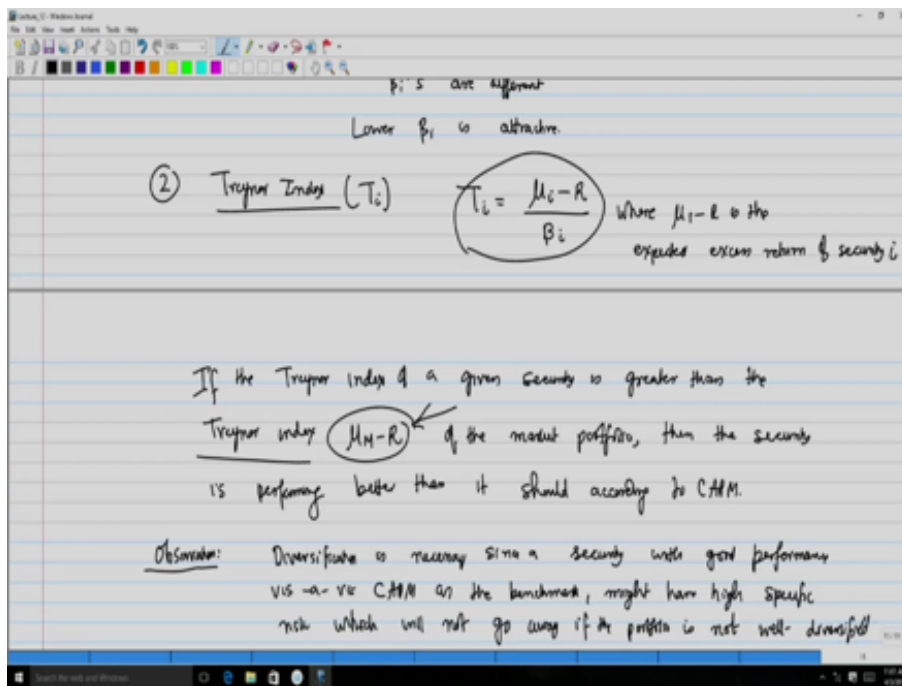 Lecture_12 - Windows Journal
File Edit View Insert Actions Tools Help
βi's are different
Lower βi is attractive.
② Treynor Index (Ti) Ti = μi-R / βi where μi-R is the
expected excess return of security i
If the Treynor index of a given security is greater than the
Treynor index μM-R of the market portfolio, then the security
is performing better than it should according to CAPM.
Observation: Diversification is necessary since a security with good performance
vis-a-vis CAPM as the benchmark, might have high specific
risk which will not go away if the portfolio is not well-diversified
Search the web and Windows